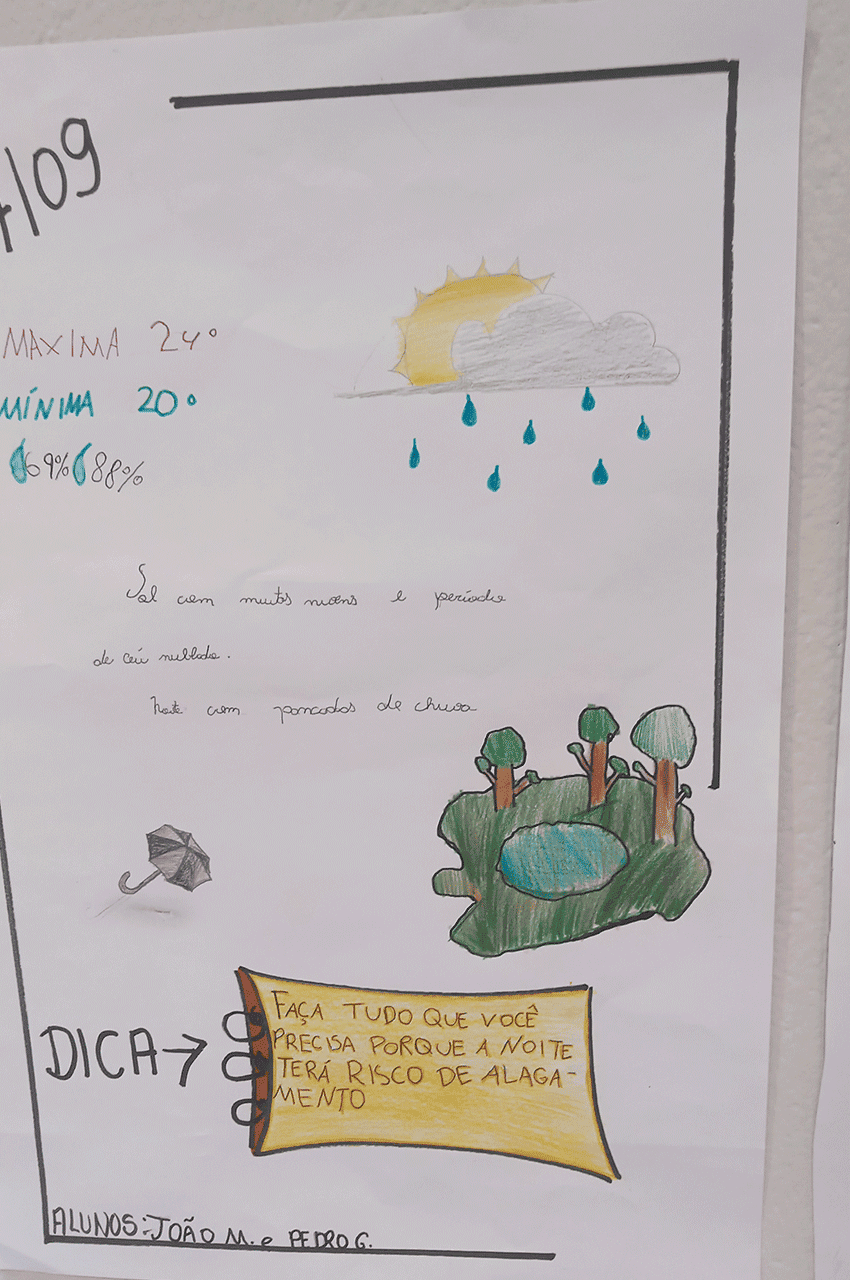 /09
MAXIMA 24°
MÍNIMA 20°
69% 88%
Sol com muitas nuvens e período
de céu nublado.
Noite com pancadas de chuva
FAÇA TUDO QUE VOCÊ
PRECISA PORQUE A NOITE
TERÁ RISCO DE ALAGA-
MENTO
DICA→
ALUNOS: JOÃO M. e PEDRO G.